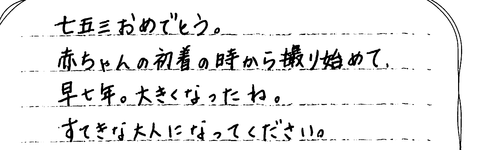 七五三おめでとう。
赤ちゃんの初着の時から撮り始めて、
早七年。大きくなったね。
すてきな大人になってください。